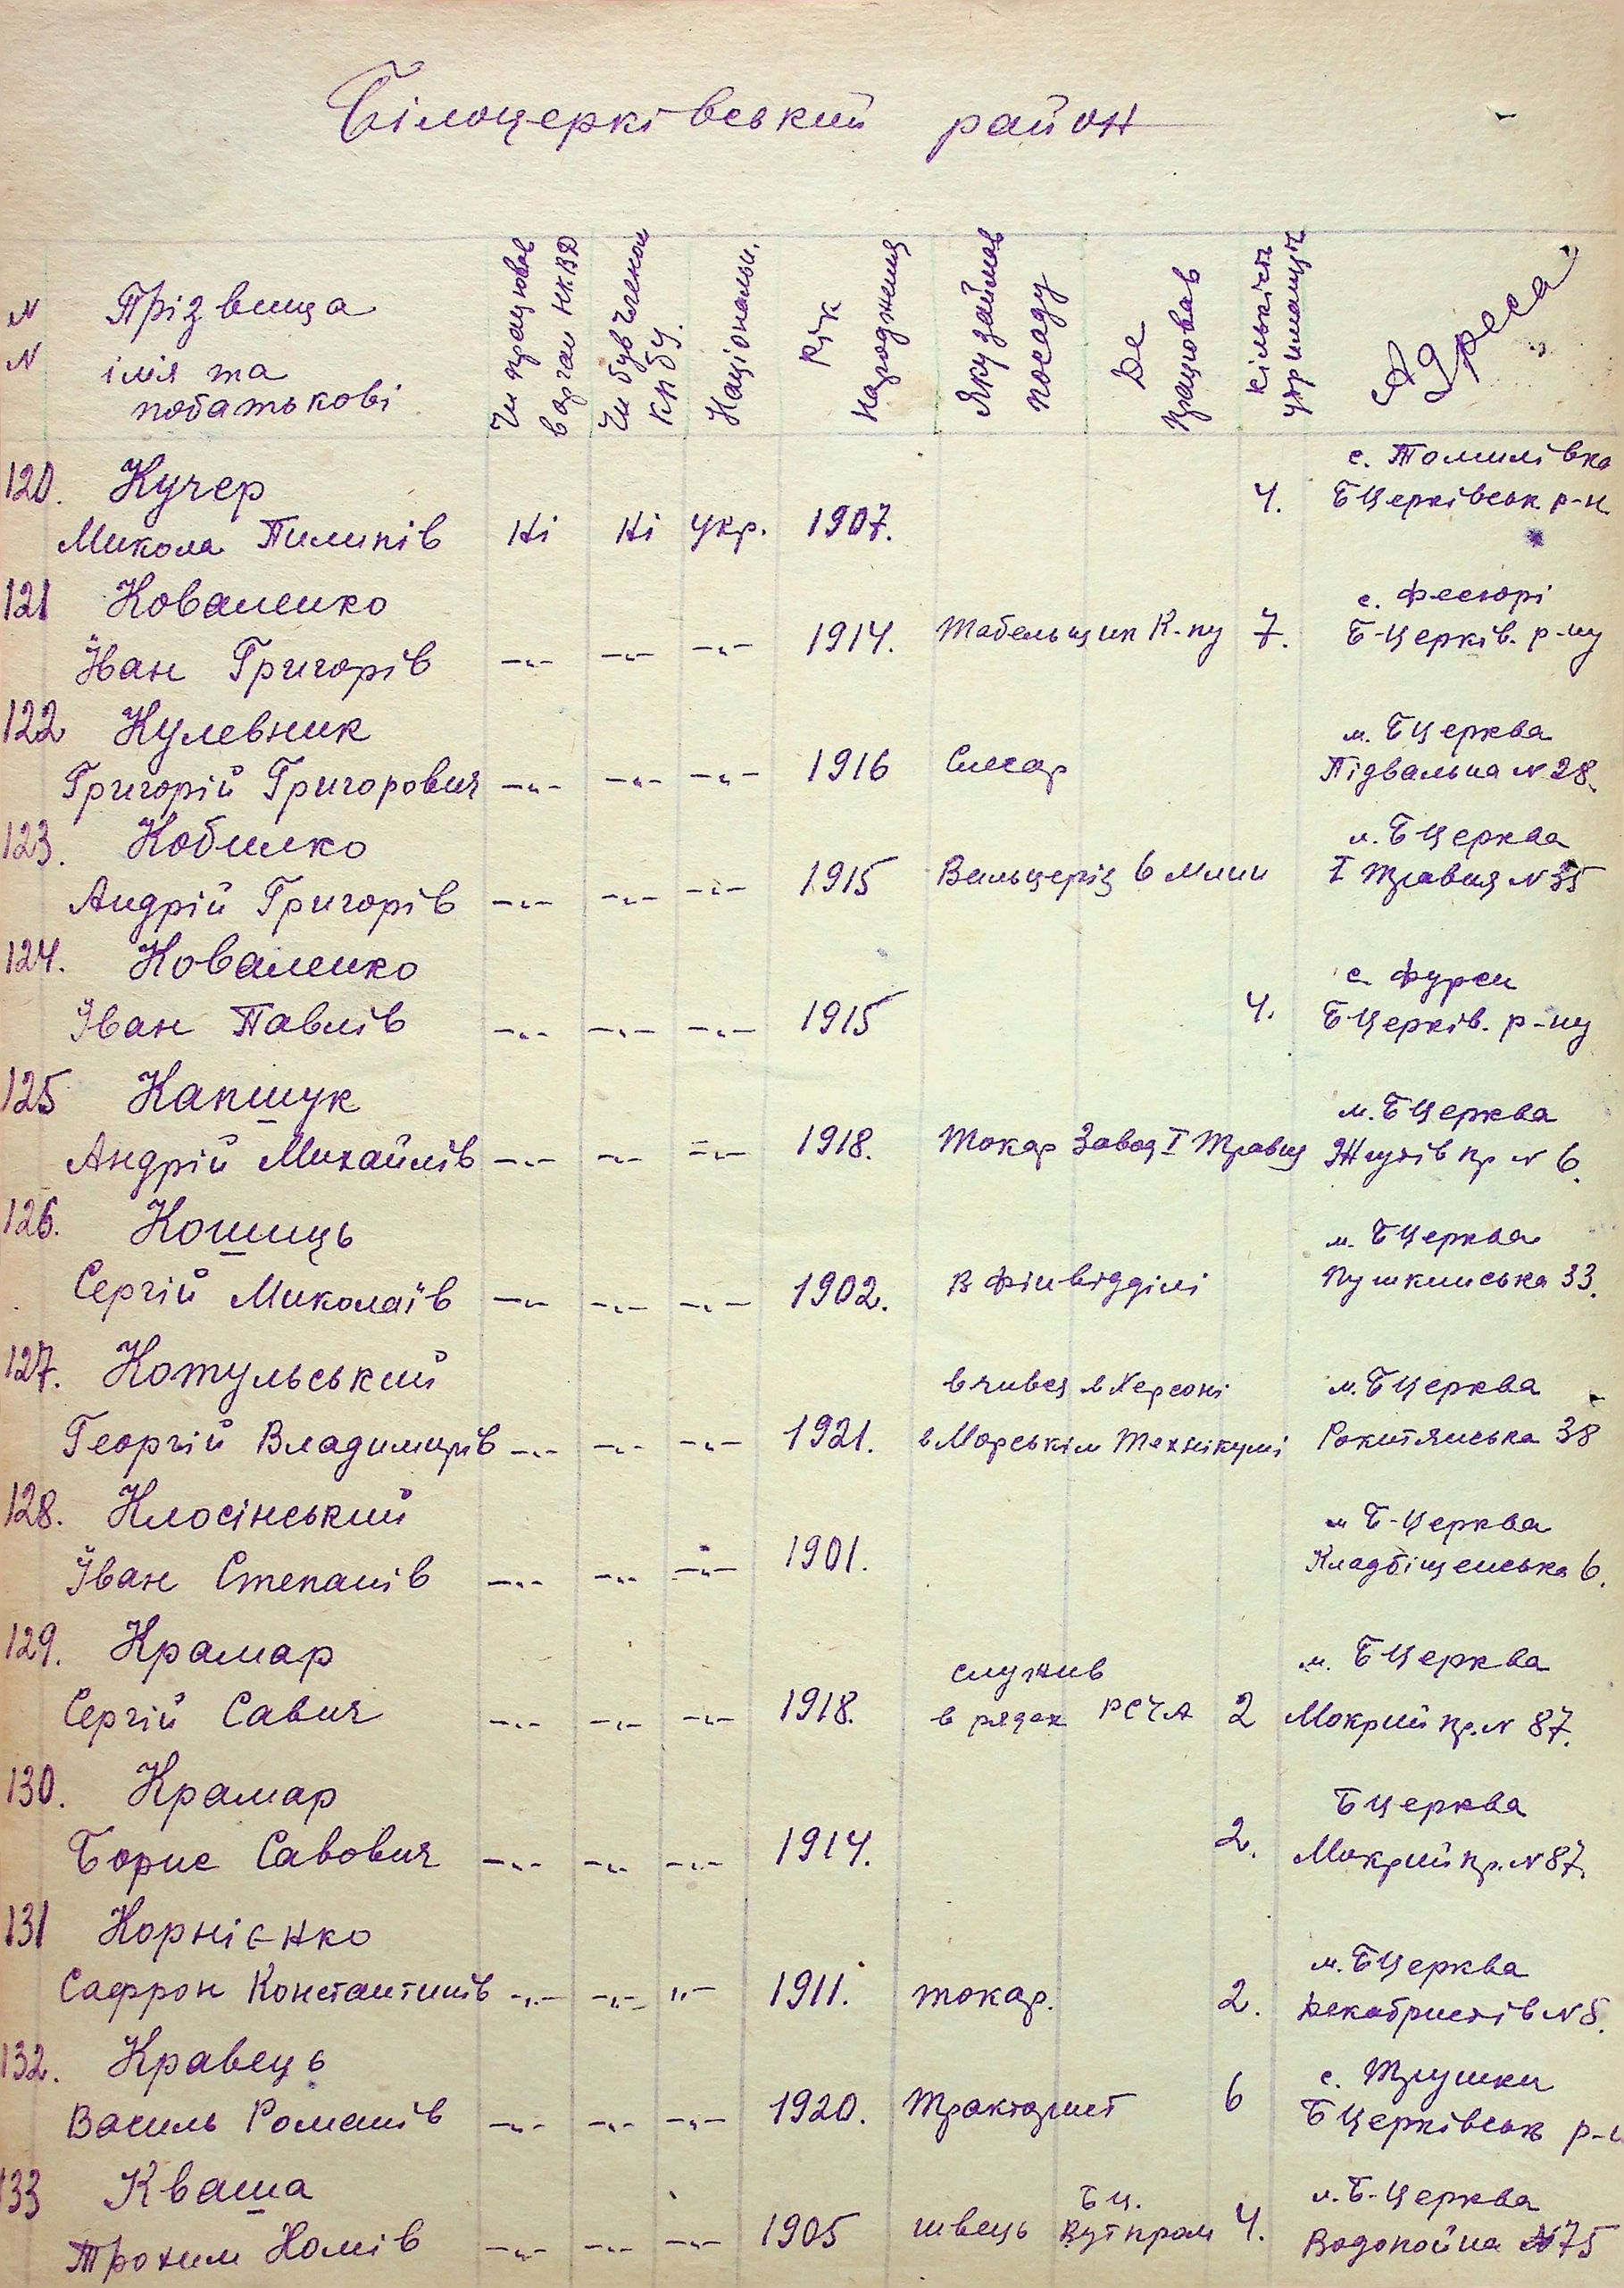 Білоцерківський район
N N
Прізвища
імія та
побатькові
Чи працював
в орган НКВД
Чи був членом
КПбУ.
Національн.
Рік
народження
Яку займав
посаду
Де
працював
кількість
утриманців
Адреса
120. Кучер
Микола Пилипів Ні Ні укр. 1907. 4. с. Томилівка
БЦерківськ. р-н
121 Коваленко
Іван Григорів -"- -"- -"- 1914. Табельщик К-пу 7. с. Фесюрі
Б-Церків. р-ну
122 Кулевник
Григорій Григорович -"- -"- -"- 1916 Слюсар м. БЦерква
Підвальна N 28.
123. Кобилко
Андрій Григорів -"- -"- -"- 1915 Вальцеріз 6 млин м. БЦерква
I Травня N 35
124. Коваленко
Іван Павлів -"- -"- -"- 1915 4. с. Фурси
БЦерків. р-ну
125 Капшук
Андрій Михайлів -"- -"- -"- 1918. Токар Завод I Травня м. БЦерква
пр N 6.
126. Кошиць
Сергій Миколаїв -"- -"- -"- 1902. В Фінвідділі м. БЦерква
Пушкинська 33.
127. Котульський
Георгій Владимирів -"- -"- -"- 1921. вчивсь в Херсоні
в Морськім Технікумі м. БЦерква
Рокитянська 38
128. Клосінський
Іван Степанів -"- -"- -"- 1901. м Б-Церква
Кладбіщенська 6.
129. Крамар
Сергій Савич -"- -"- -"- 1918. служив
в рядах РСЧА 2 м. БЦерква
Мокрий пр. N 87.
130. Крамар
Борис Савович -"- -"- -"- 1914. 2. БЦерква
Мокрий пр. N 87.
131 Корнієнко
Сафрон Константинів -"- -"- -"- 1911. токар. 2. м. БЦерква
Декабристів N 8.
132. Кравець
Василь Романів -"- -"- -"- 1920. Тракторист 6 с. Трушки
БЦерківськ р-н
133 Кваша
Трохим Хомів -"- -"- -"- 1905 швець Бц.
Вутпром 4. м. Б-Церква
Водопойна N 75